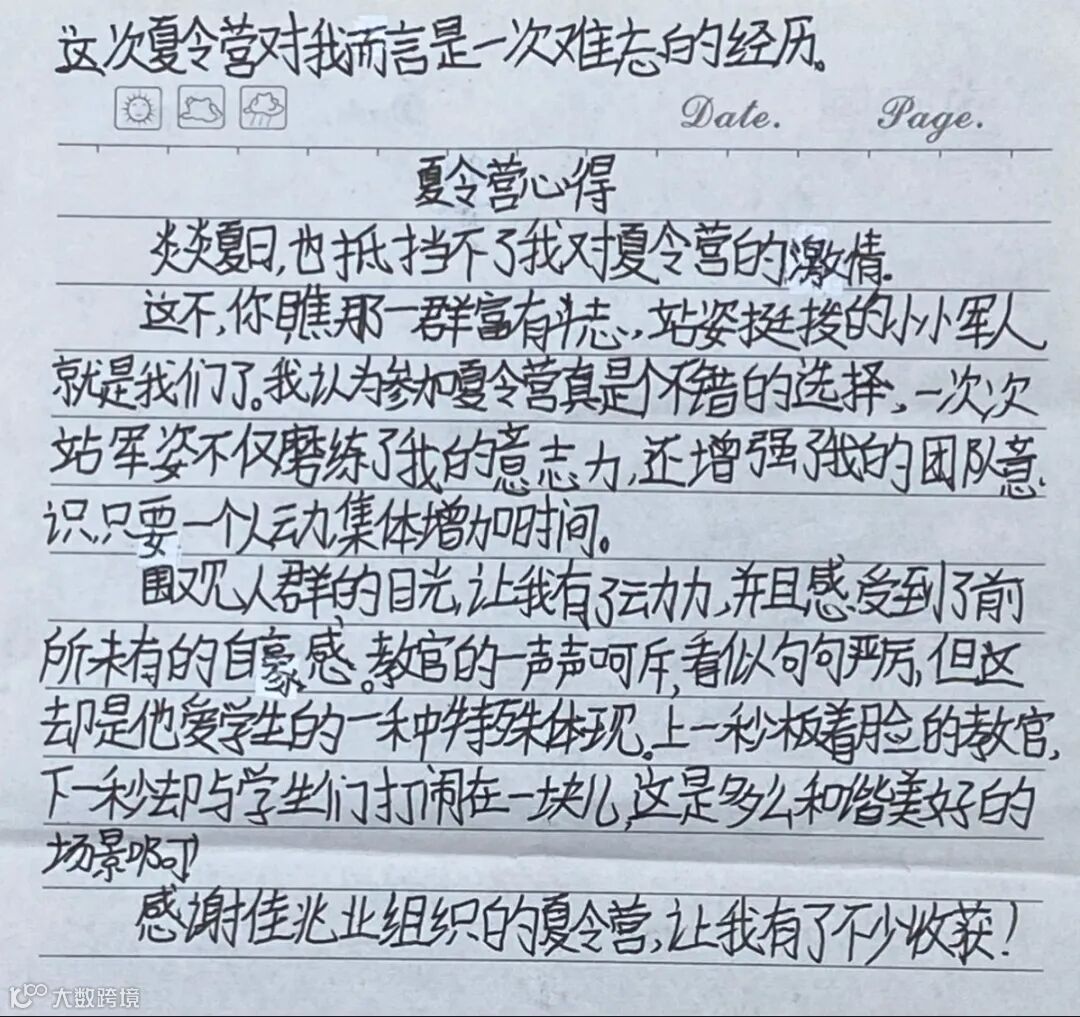 这次夏令营对我而言是一次难忘的经历。
Date. Page.
夏令营心得
炎炎夏日,也抵挡不了我对夏令营的激情.
这不,你瞧那一群富有斗志,站姿挺拨的小小军人
就是我们了。我认为参加夏令营真是个不错的选择,一次次
站军姿不仅磨练了我的意志力,还增强了我的团队意
识,只要一个人动,集体增加时间。
围观人群的目光,让我有了动力,并且感受到了前
所未有的自豪感。教官的一声声呵斥,看似句句严厉,但这
却是他爱学生的一种特殊体现。上一秒板着脸的教官,
下一秒却与学生们打闹在一块儿,这是多么和谐美好的
场景啊!
感谢佳兆业组织的夏令营,让我有了不少收获!
大数跨境